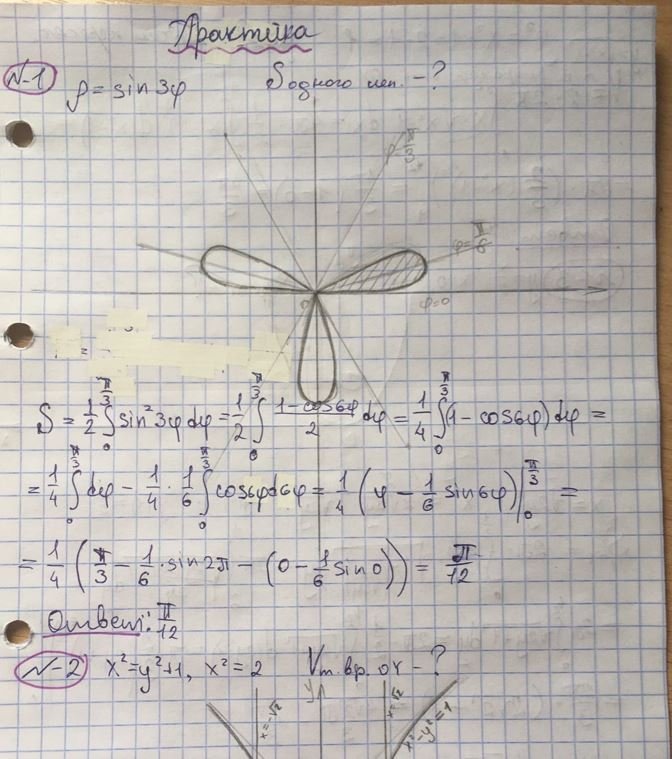 Практика
N-1 ρ = sin 3φ S одного леп. - ?
φ = π/3
φ = π/6
0 φ=0
=
S = 1/2 ∫₀^{π/3} sin² 3φ dφ = 1/2 ∫₀^{π/3} (1 - cos6φ)/2 dφ = 1/4 ∫₀^{π/3} (1 - cos6φ) dφ =
= 1/4 ∫₀^{π/3} dφ - 1/4 · 1/6 ∫₀^{π/3} cos6φ d6φ = 1/4 (φ - 1/6 sin6φ) |₀^{π/3} =
= 1/4 (π/3 - 1/6 · sin2π - (0 - 1/6 sin0)) = π/12
Ответ: π/12
N-2 x² = y² + 1, x² = 2 Vт. вр. OY - ?
y
x = -√2 x = √2 x² - y² = 1